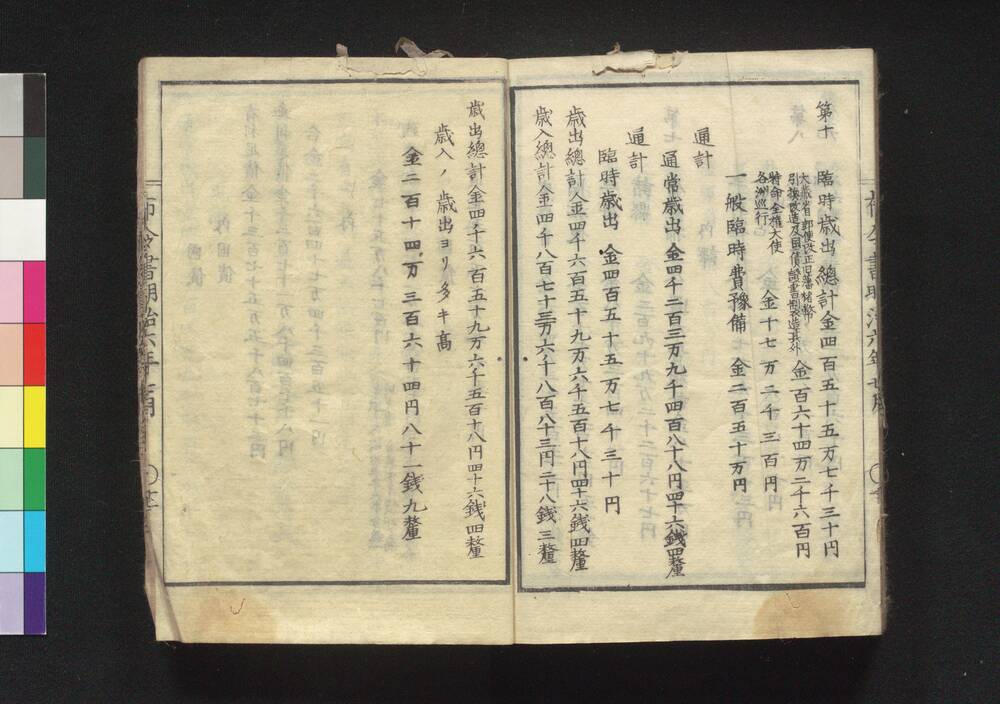 第十
臨時歳出總計金四百五十五万七千三十円
大藏省郵便改正旧藩楮幣
引換改造及國債證書製造其外
金百六十四万二千六百円
特命全権大使
各洲巡行
金十七万二千三百円
一般臨時費豫備 金二百五十万円
通計
通常歳出 金四千二百三万九千四百八十八円四十六銭四釐
通計
臨時歳出 金四百五十五万七千三十円
歳出總計金四千六百五十九万六千五百十八円四十六銭四釐
歳入總計金四千八百七十三万六千八百八十三円二十八銭三釐
歳出總計金四千六百五十九万六千五百十八円四十六銭四釐
歳入ノ歳出ヨリ多キ高
金二百十四万三百六十四円八十一銭九釐
布令書明治六年七月